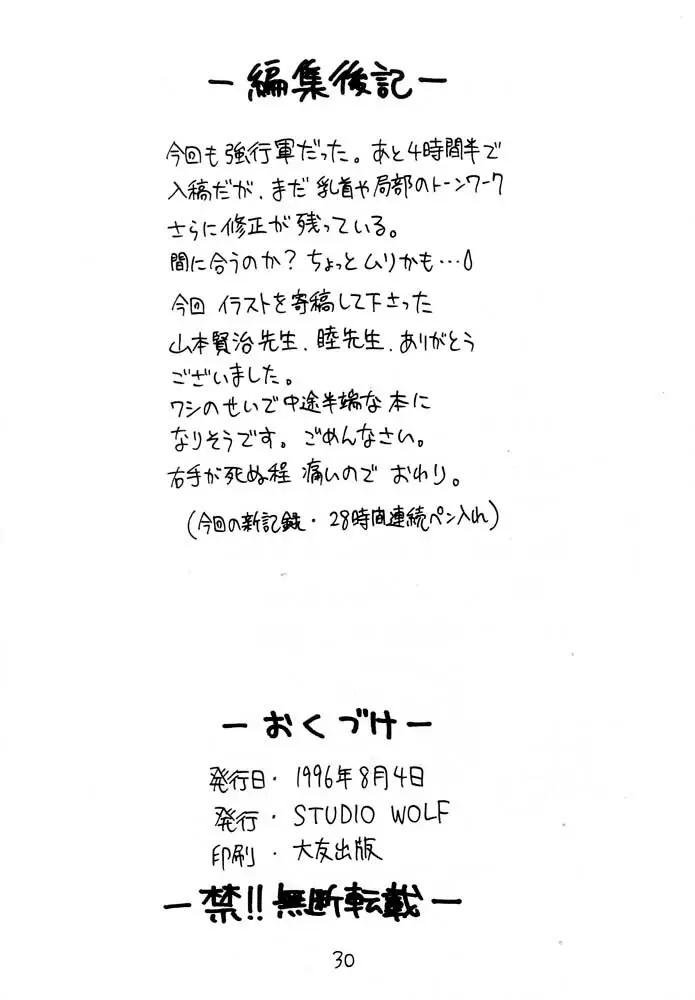 ー編集後記ー
今回も強行軍だった。あと4時間半で
入稿だが、まだ乳首や局部のトーンワーク
さらに修正が残っている。
間に合うのか?ちょっとムリかも…
今回 イラストを寄稿して下さった
山本賢治先生、睦先生、ありがとう
ございました。
ワシのせいで中途半端な本に
なりそうです。ごめんなさい。
右手が死ぬ程 痛いので おわり。
(今回の新記録・28時間連続ペン入れ)
ーおくづけー
発行日・1996年8月4日
発行・STUDIO WOLF
印刷・大友出版
ー禁!!無断転載ー
30